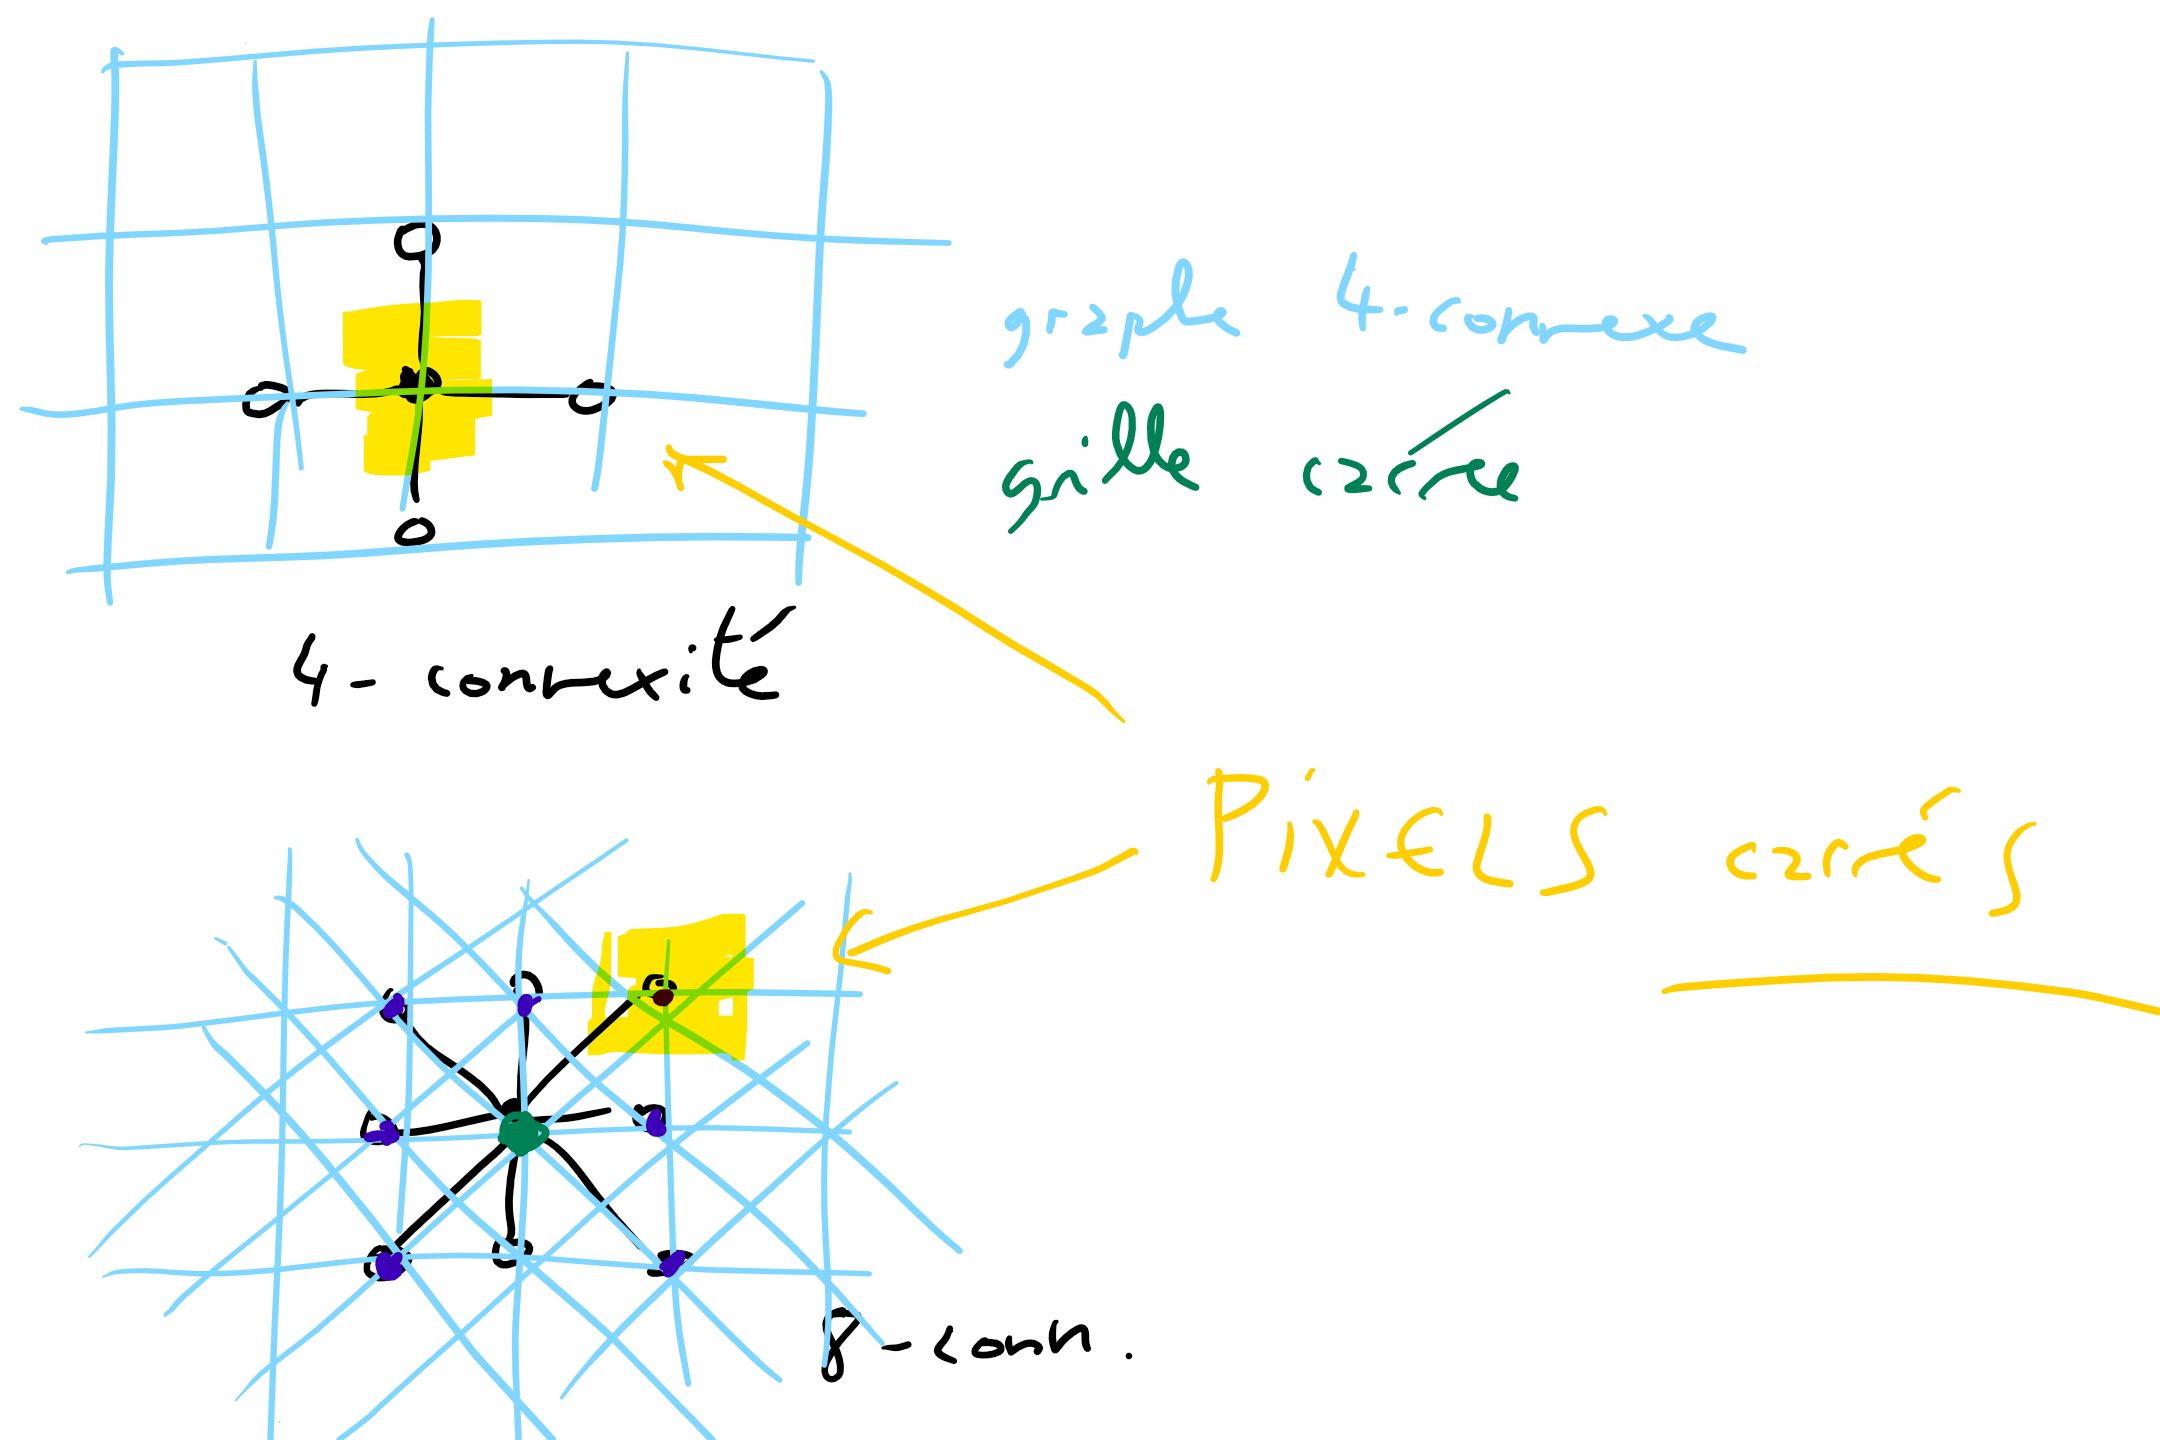 graphe 4-connexe
grille carrée
4-connexité
PiXELS carrés
8-conn.